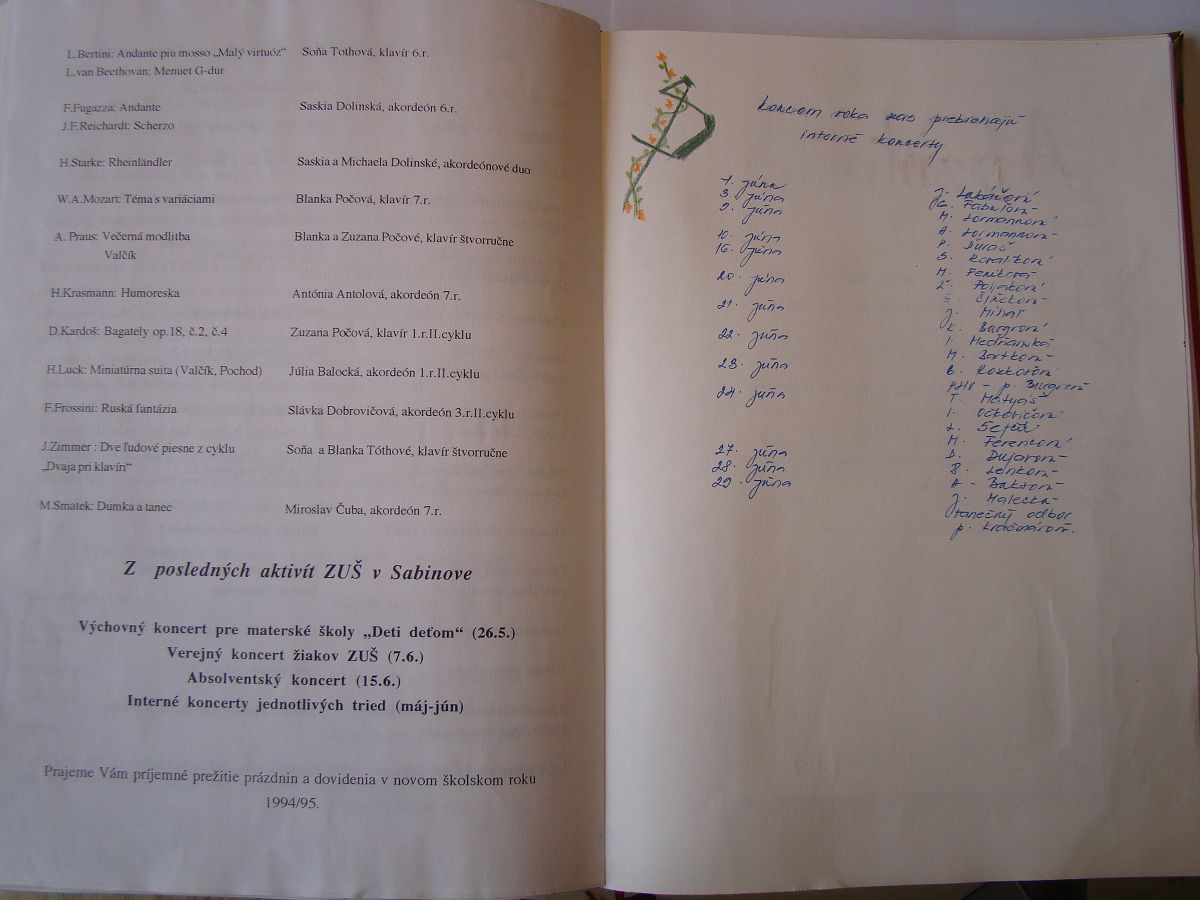 L.Bertini: Andante piu mosso „Malý virtuóz“ Soňa Tothová, klavír 6.r.
L.van Beethovan: Menuet G-dur
F.Fugazza: Andante Saskia Dolinská, akordeón 6.r.
J.F.Reichardt: Scherzo
H.Starke: Rheinländler Saskia a Michaela Dolinské, akordeónové duo
W.A.Mozart: Téma s variáciami Blanka Počová, klavír 7.r.
A. Praus: Večerná modlitba Blanka a Zuzana Počové, klavír štvorručne
Valčík
H.Krasmann: Humoreska Antónia Antolová, akordeón 7.r.
D.Kardoš: Bagately op.18, č.2, č.4 Zuzana Počová, klavír 1.r.II.cyklu
H.Luck: Miniatúrna suita (Valčík, Pochod) Júlia Balocká, akordeón 1.r.II.cyklu
F.Frossini: Ruská fantázia Slávka Dobrovičová, akordeón 3.r.II.cyklu
J.Zimmer : Dve ľudové piesne z cyklu Soňa a Blanka Tóthové, klavír štvorručne
„Dvaja pri klavíri“
M.Smatek: Dumka a tanec Miroslav Čuba, akordeón 7.r.
Z posledných aktivít ZUŠ v Sabinove
Výchovný koncert pre materské školy „Deti deťom“ (26.5.)
Verejný koncert žiakov ZUŠ (7.6.)
Absolventský koncert (15.6.)
Interné koncerty jednotlivých tried (máj-jún)
Prajeme Vám príjemné prežitie prázdnin a dovidenia v novom školskom roku
1994/95.
Koncom roka nas prebiehajú
interné koncerty
1. júna
3. júna
9. júna
10. júna
16. júna
20. júna
21. júna
22. júna
23. júna
24. júna
27. júna
28. júna
29. júna
J. Lukáčová
P. Ďurač
J. Mihaľ
T. Matyáš
M. Ferencová
J. Malecká
tanečný odbor